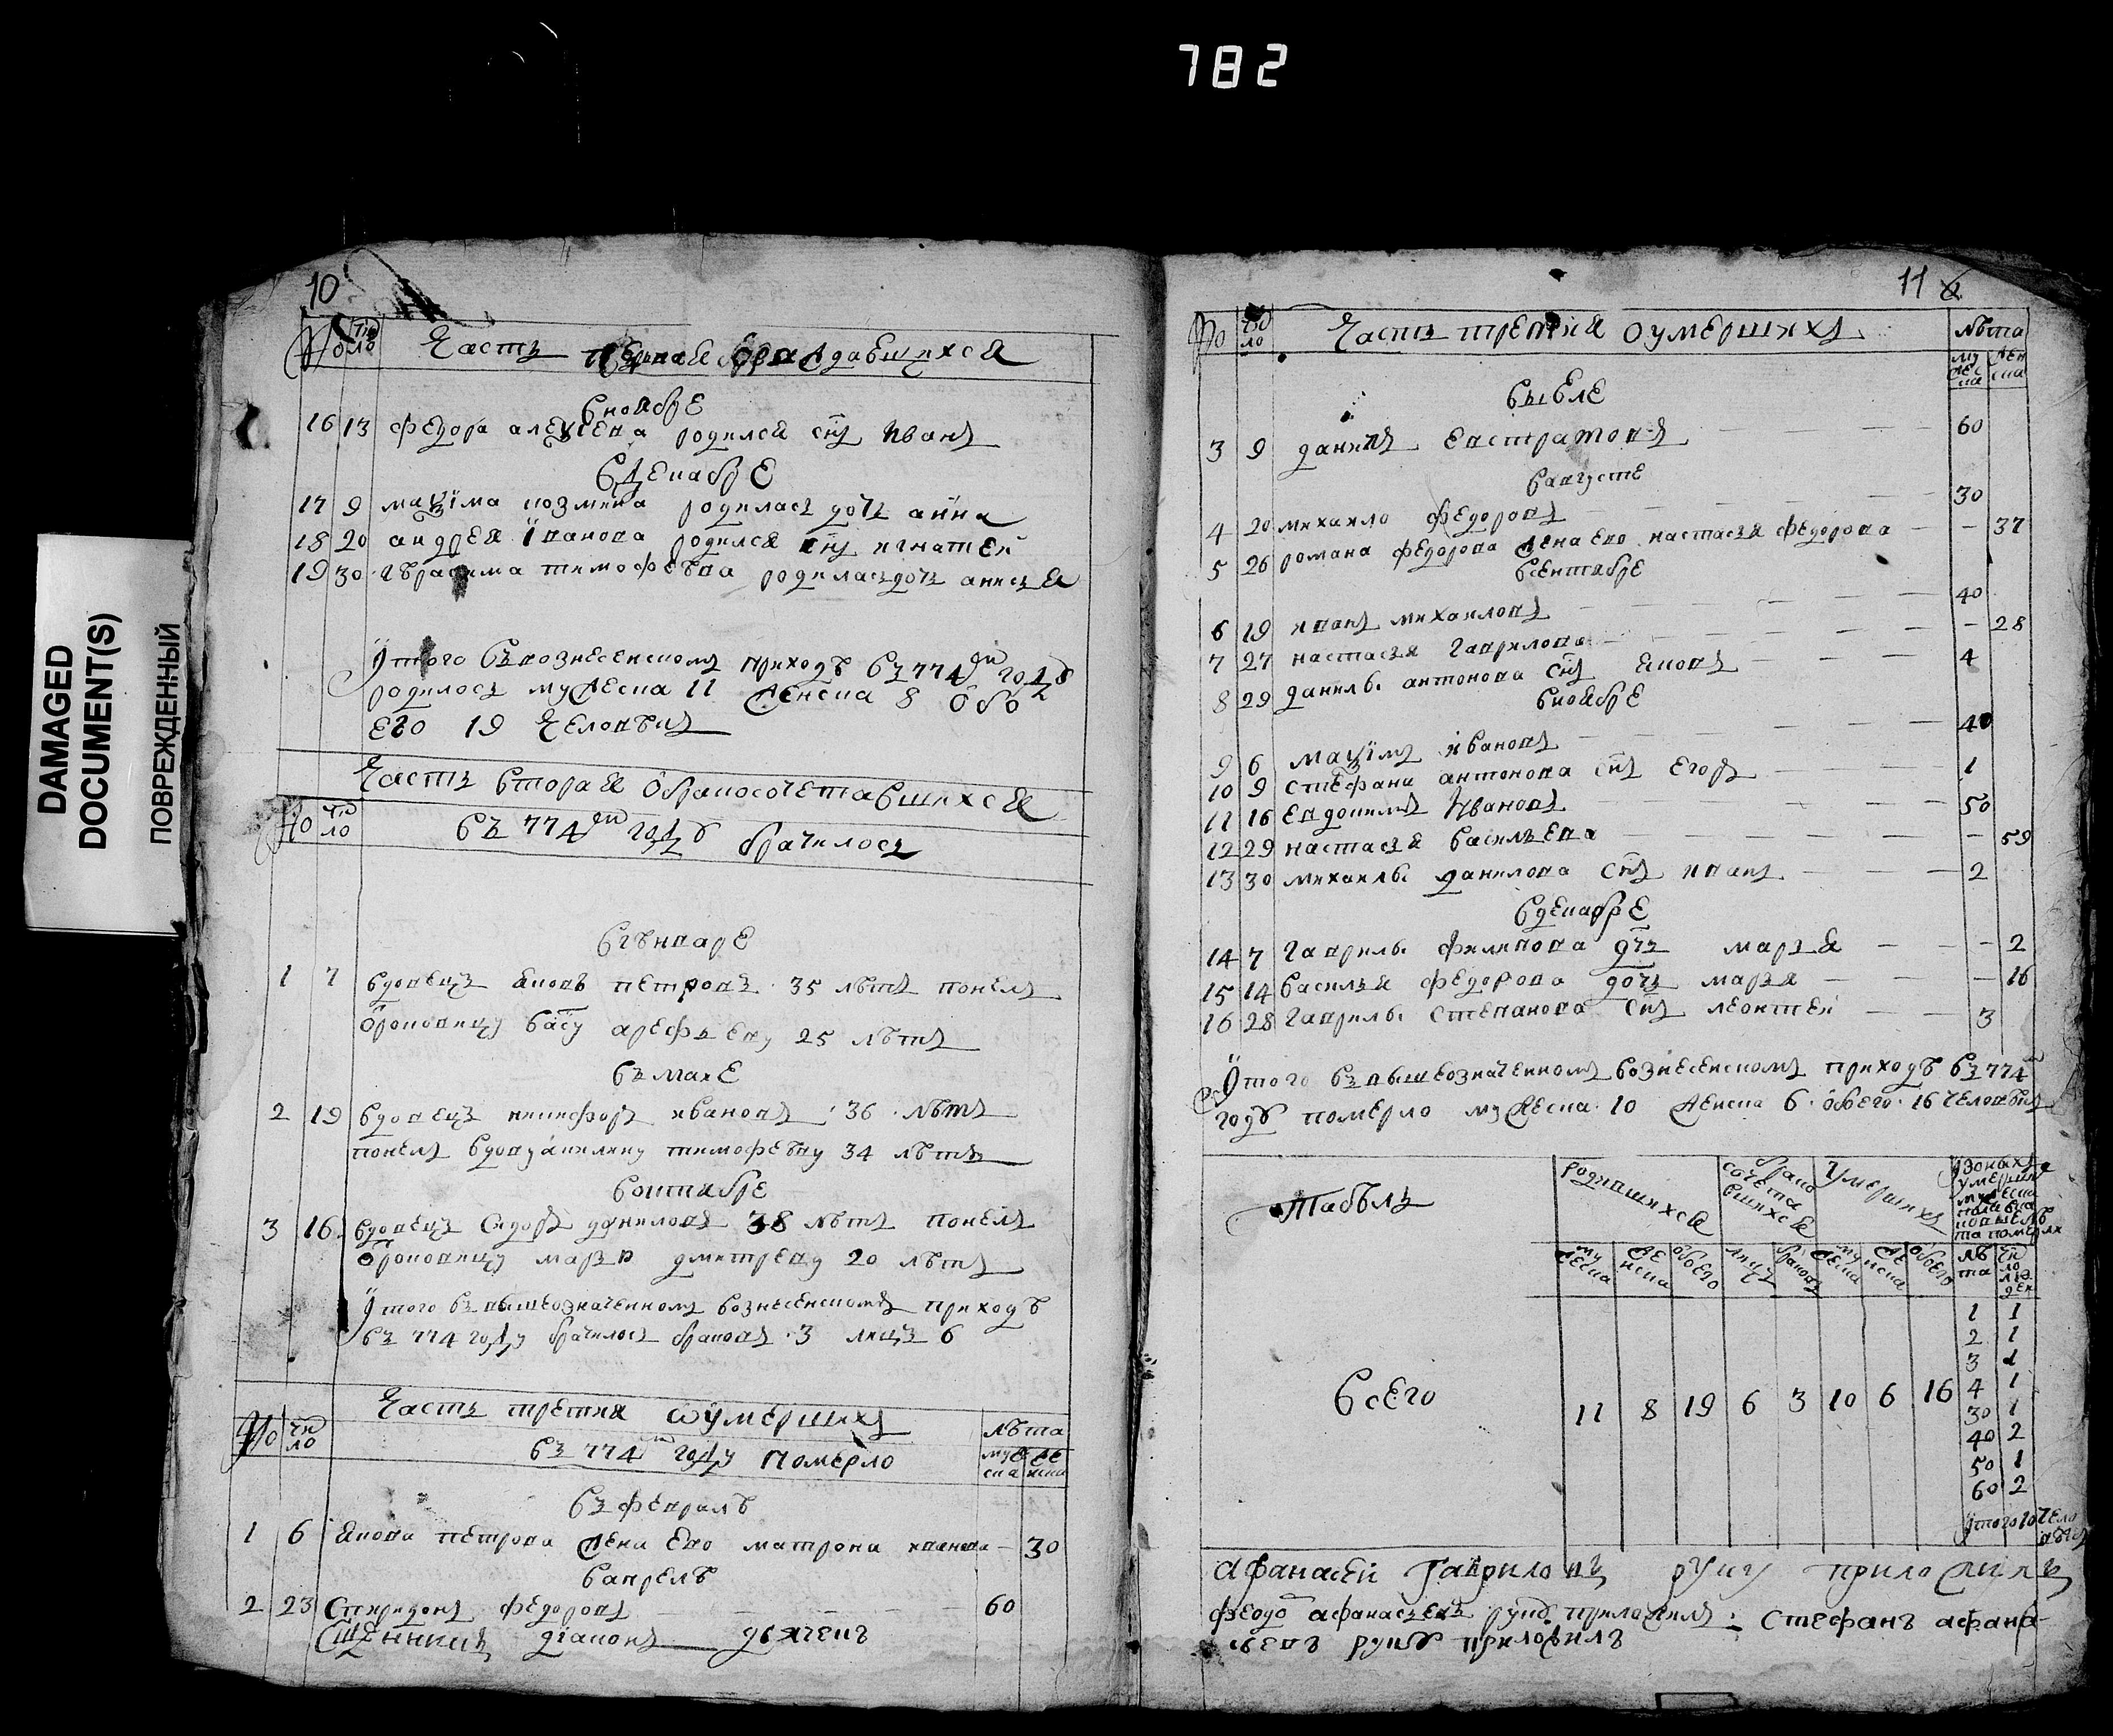 782
DAMAGED
DOCUMENT(S)
ПОВРЕЖДЕННЫЙ
10
No число Часть первая о раждавшихся
в ноябре
16 13 федора алексеева родился снъ Иванъ
в декабре
17 9 маѯима козмина родилась дочь анна
18 20 андрея Їванова родился снъ игнатей
19 30 гѣрасима тимофѣева родилась дочь анисья
Итого въ вознесенскомъ приходѣ въ 774м годѣ
родилось мужеска 11 женска 8 обо
его 19 человѣкъ
Часть вторая о бракосочетавшихся
No число въ 774м годѣ брачилось
в гѣнваре
1 7 вдовецъ яковъ петровъ 35 лѣтъ понелъ
ѿроковицу васу арефьеву 25 лѣтъ
въ мае
2 19 вдовецъ никифоръ ивановъ 36 лѣтъ
понелъ вдову акилину тимофѣеву 34 лѣтъ
в октябре
3 16 вдовецъ Сидоръ даниловъ 38 лѣтъ понелъ
ѿроковицу марью дмитреву 20 лѣтъ
Итого въ вышеозначенномъ вознесенскомъ приходѣ
въ 774 году брачилось браковъ 3 лицъ 6
No число Часть третия ѡ умершихъ лѣта
въ 774м году померло мужеска женска
въ февралѣ
1 6 Якова петрова жена ево матрона иванова 30
в апрелѣ
2 23 Спиридонъ федоровъ 60
Сщенникъ діаконъ дьячекъ
11
No число Часть третия о умершихъ лѣта
мужеска женска
в ыюле
3 9 данила евстратовъ 60
в августе
4 20 михаило федоровъ 30
5 26 романа федорова жена ево настасья федорова 37
в сентябре
6 19 иванъ михаиловъ 40
7 27 настасья гаврилова 28
8 29 данилы антонова снъ яковъ 4
в ноябре
9 6 маѯимъ ивановъ 40
10 9 стефана антонова снъ егоръ 1
11 16 евдокимъ Ивановъ 50
12 29 настасья васильева 59
13 30 михаилы данилова снъ иванъ 2
в декабре
14 7 гаврилы филипова дчь марья 2
15 14 василья федорова дочь марья 16
16 28 гаврилы степанова снъ леонтей 3
Итого въ вышеозначенномъ вознесенскомъ приходѣ въ 774м
годѣ померло мужеска 10 женска 6 обоего 16 человѣкъ
Табѣль родившихся бракосочетавшихся умершихъ
мужеска женска обоего лицъ браковъ мужеска женска обоего лѣта число людей
Всего 11 8 19 6 3 10 6 16
1 1
2 1
3 1
4 1
30 1
40 2
50 1
60 2
Итого 10 человѣкъ
афанасей гавриловъ руку приложилъ
федоръ афанасьевъ руку приложилъ: стефанъ афана-
сьевъ руку приложилъ